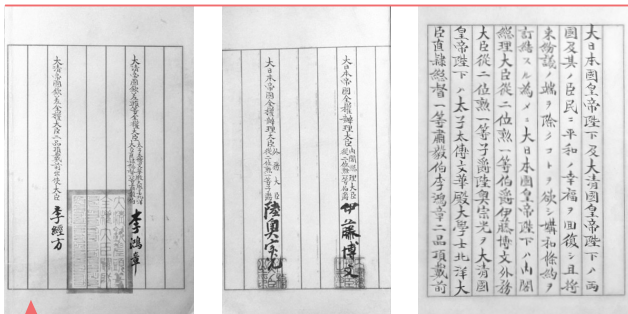 大日本國皇帝陛下及大清國皇帝陛下ハ兩
國及其ノ臣民ニ平和ノ幸福ヲ回復シ且將
來紛議ノ端ヲ除クコトヲ欲シ媾和條約ヲ
訂結スル為メニ大日本國皇帝陛下ハ内閣
總理大臣從二位勲一等伯爵伊藤博文外務
大臣從二位勲一等子爵陸奥宗光ヲ大清國
皇帝陛下ハ太子太傅文華殿大學士北洋大
臣直隷總督一等肅毅伯李鴻章二品頂戴前
大日本帝國全權辦理大臣内閣總理大臣從二位勲一等伯爵伊藤博文
大日本帝國全權辦理大臣外務大臣從二位勲一等子爵陸奥宗光
大清帝國欽差頭等全權大臣李鴻章
大清帝國欽差全權大臣二品頂戴前出使大臣李經方